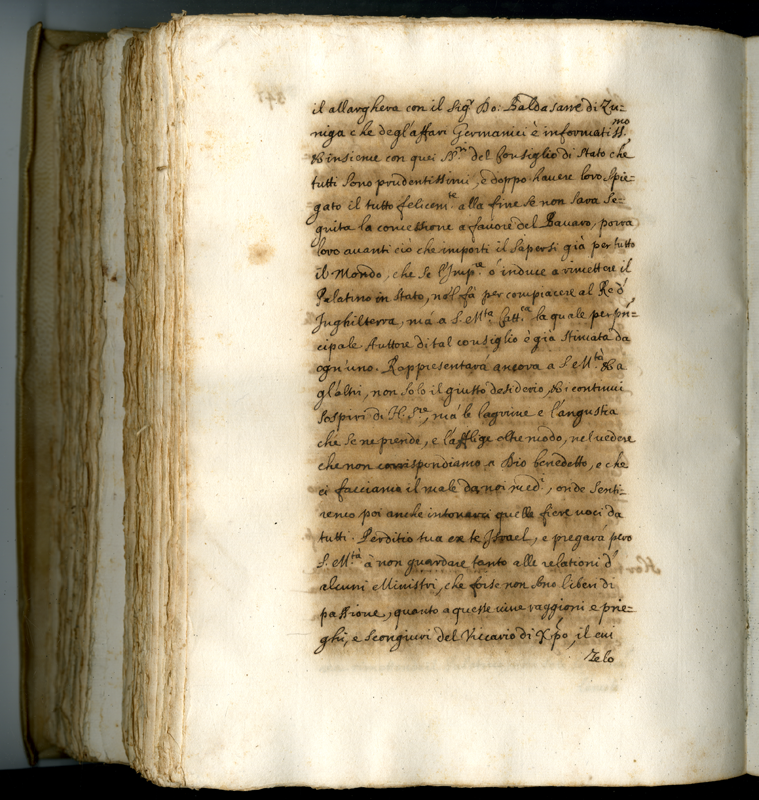 il allarghera con il Sigr Do: Baldasarre di Zu=
niga che degl'affari Germanici è informatiss.mo
& insieme con quei SS.ri del Consiglio di Stato che
tutti sono prudentissimi, e doppo havere loro spie=
gato il tutto felicem.te alla fine se non sara se=
guita la concessione a favore del Bavaro, porra
loro avanti ciò che importi il sapersi già per tutto
il Mondo, che se l'Imp.re s'induce a rimettere il
Palatino in stato, nol fà per compiacere al Re d'
Inghilterra, mà a S. M.ta Catt.ca la quale per prn=
cipale Auttore di tal consiglio è già stimata da
ogn'uno. Rappresentarà ancora a S. M.tà & a
gl'altri, non solo il giusto desiderio, & i continui
sospiri di N. S.re, mà le lagrime e l'angustia
che se ne prende, e l'afflige oltre modo, nel vedere
che non corrispondiamo a Dio benedetto, e che
ci facciamo il male da noi med.i, onde senti=
remo poi anche intonarci quelle fiere voci da
tutti. Perditio tua ex te Israel, e pregarà pero
S. M.tà à non guardare tanto alle relationi d'
alcuni Ministri, che forse non sono liberi di
passione, quanto a queste vive raggioni e prie=
ghi, e scongiuri del Viccario di Xpo, il cui
Zelo